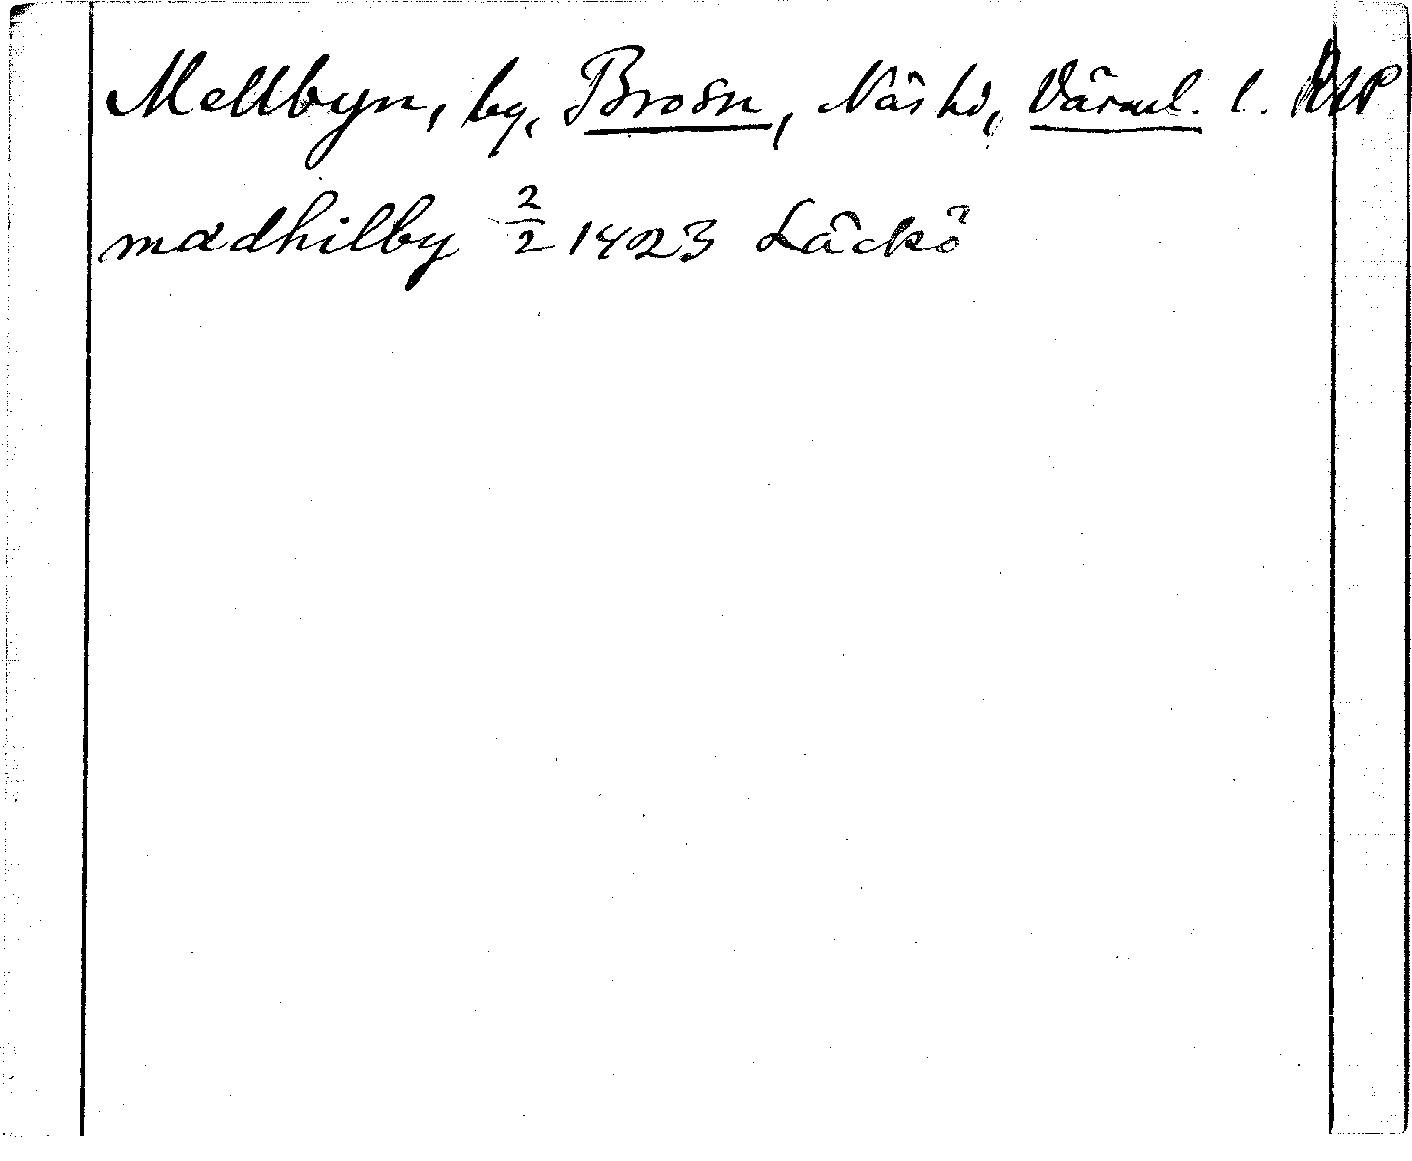 Mellbyn, by, Bro sn, Näs hd, Värml. l.
mædhilby 2/2 1423 Läckö